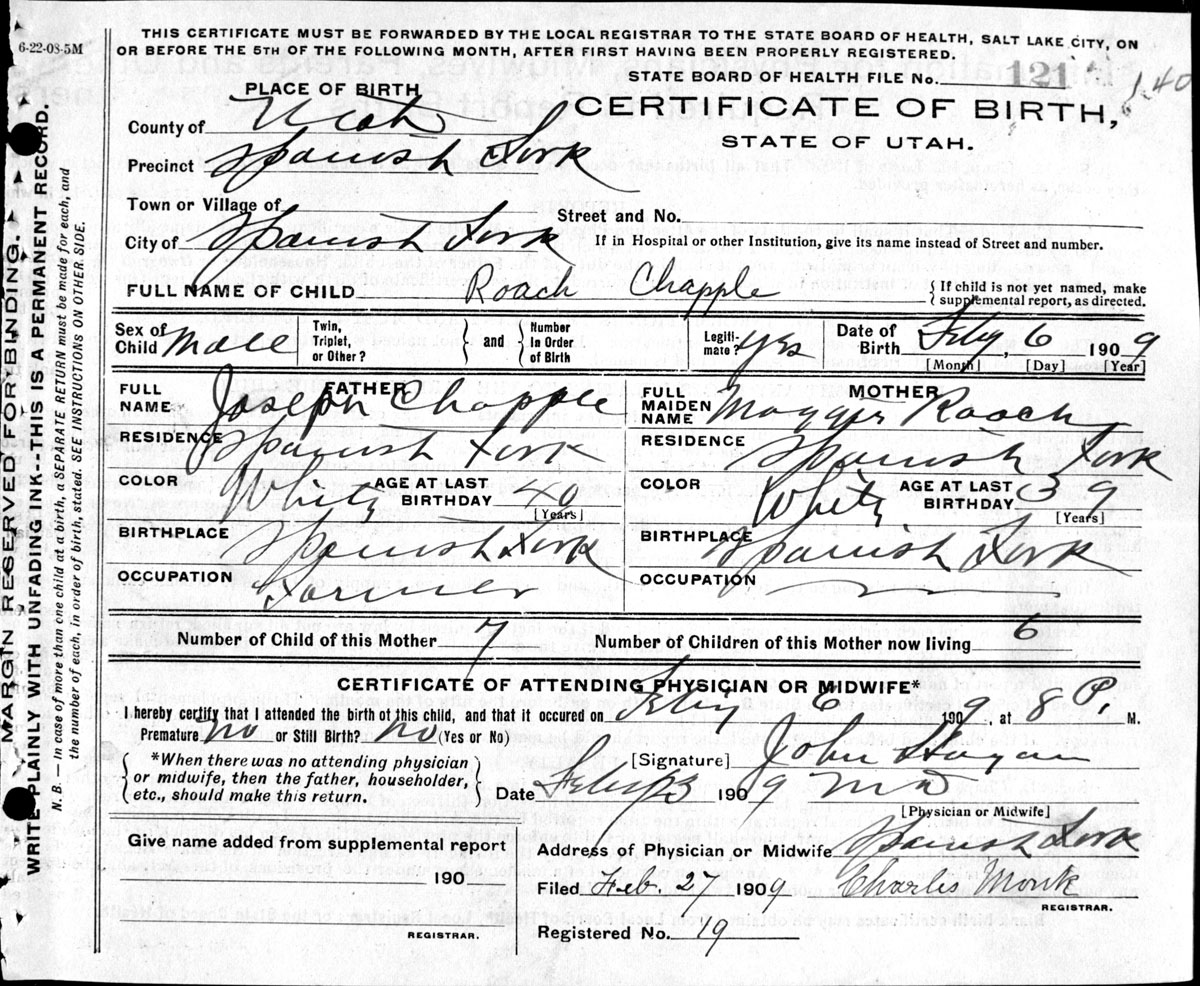 6-22-08-5M
THIS CERTIFICATE MUST BE FORWARDED BY THE LOCAL REGISTRAR TO THE STATE BOARD OF HEALTH, SALT LAKE CITY, ON
OR BEFORE THE 5TH OF THE FOLLOWING MONTH, AFTER FIRST HAVING BEEN PROPERLY REGISTERED.
STATE BOARD OF HEALTH FILE No. 121 140
PLACE OF BIRTH
CERTIFICATE OF BIRTH,
STATE OF UTAH.
County of Utah
Precinct Spanish Fork
Town or Village of
Street and No.
City of Spanish Fork
If in Hospital or other Institution, give its name instead of Street and number.
FULL NAME OF CHILD Roach Chapple
{ If child is not yet named, make supplemental report, as directed.
Sex of Child Male
Twin, Triplet, or Other? } and { Number in Order of Birth
Legitimate? yes
Date of Birth Feby, 6 1909
[Month] [Day] [Year]
FATHER
FULL NAME Joseph Chapple
RESIDENCE Spanish Fork
COLOR White AGE AT LAST BIRTHDAY 40
[Years]
BIRTHPLACE Spanish Fork
OCCUPATION Farmer
MOTHER
FULL MAIDEN NAME Maggie Roach
RESIDENCE Spanish Fork
COLOR White AGE AT LAST BIRTHDAY 39
[Years]
BIRTHPLACE Spanish Fork
OCCUPATION
Number of Child of this Mother 7
Number of Children of this Mother now living 6
CERTIFICATE OF ATTENDING PHYSICIAN OR MIDWIFE*
I hereby certify that I attended the birth of this child, and that it occured on Feby 6 1909, at 8 P. M.
Premature? no or Still Birth? no (Yes or No)
{ *When there was no attending physician or midwife, then the father, householder, etc., should make this return. }
[Signature] John Hagan
Date 1909 MD
[Physician or Midwife]
Give name added from supplemental report
190
REGISTRAR.
Address of Physician or Midwife Spanish Fork
Filed Feb. 27 1909 Charles Monk
REGISTRAR.
Registered No. 19
MARGIN RESERVED FOR BINDING.
WRITE PLAINLY WITH UNFADING INK---THIS IS A PERMANENT RECORD.
N. B. — In case of more than one child at a birth, a SEPARATE RETURN must be made for each, and
the number of each, in order of birth, stated. SEE INSTRUCTIONS ON OTHER SIDE.